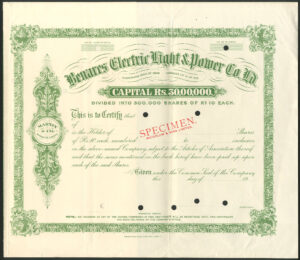 Benares Electric Light & Power Co. Ld.
CAPITAL RS. 30,00,000,
DIVIDED INTO 300,000 SHARES OF RS 10 EACH.
This is to Certify that
of
is the Holder of Shares
of Rs. 10 each numbered to inclusive
in the above-named Company, subject to the Articles of Association thereof
and that the sums mentioned on the back hereof have been paid up upon
each of the said Shares
Given under the Common Seal of the Company
this day of 19
SPECIMEN
MARTIN
& CO.